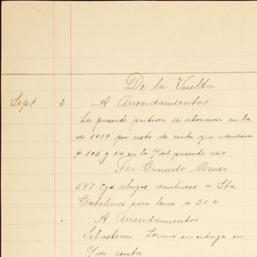 De la Vuelta
Sept 3 A Arrendamientos
La presente partida se abonaron en la
de 1909 por resto de renta que
p 105 y 14 en la 7 del presente año
Por Ganado Menor
597 c/s abajo remitidos a Sta
Catalina por lana a 20 c
A Arrendamientos
Sebastian en entrega en
renta